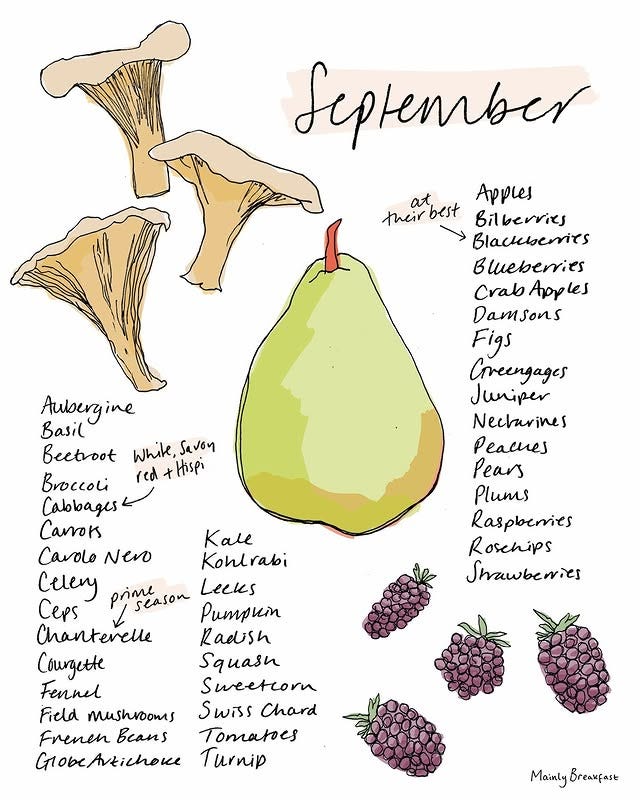 September
at
their best
Apples
Bilberries
Blackberries
Blueberries
Crab Apples
Damsons
Figs
Greengages
Juniper
Nectarines
Peaches
Pears
Plums
Raspberries
Rosehips
Strawberries
Aubergine
Basil
Beetroot
Broccoli
Cabbages
White, Savoy
red + Hispi
Carrots
Cavolo Nero
Celery
Ceps
prime
season
Chanterelle
Courgette
Fennel
Field mushrooms
French Beans
Globe Artichoke
Kale
Kohlrabi
Leeks
Pumpkin
Radish
Squash
Sweetcorn
Swiss Chard
Tomatoes
Turnip
Mainly Breakfast